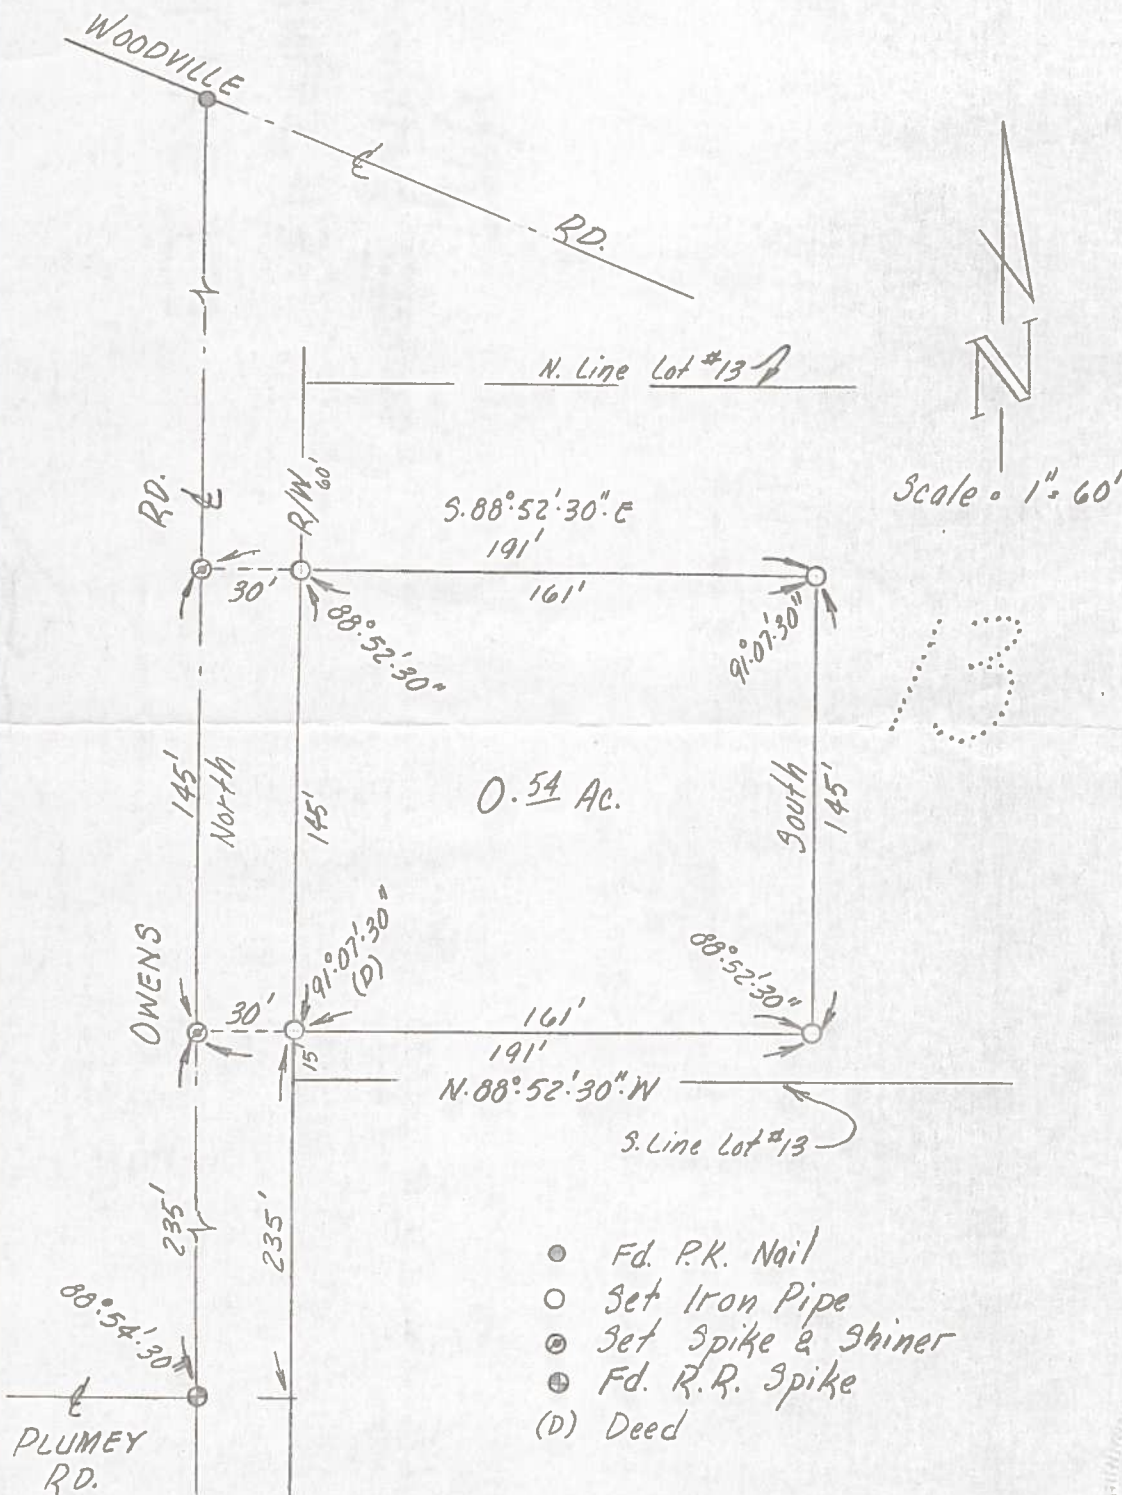 WOODVILLE
℄
RD.
N. Line Lot #13
N
Scale: 1"= 60'
RD.
℄
R/W 60'
S.88°.52'.30".E
191'
30'
161'
88°.52'.30"
91°.07'.30"
13
145'
North
145'
0.54 Ac.
South
145'
OWENS
91°.07'.30"
(D)
88°.52'.30"
30'
161'
15
191'
N.88°.52'.30".W
S. Line Lot #13
235'
235'
88°.54'.30"
℄
PLUMEY
RD.
Fd. P.K. Nail
Set Iron Pipe
Set Spike & Shiner
Fd. R.R. Spike
(D) Deed